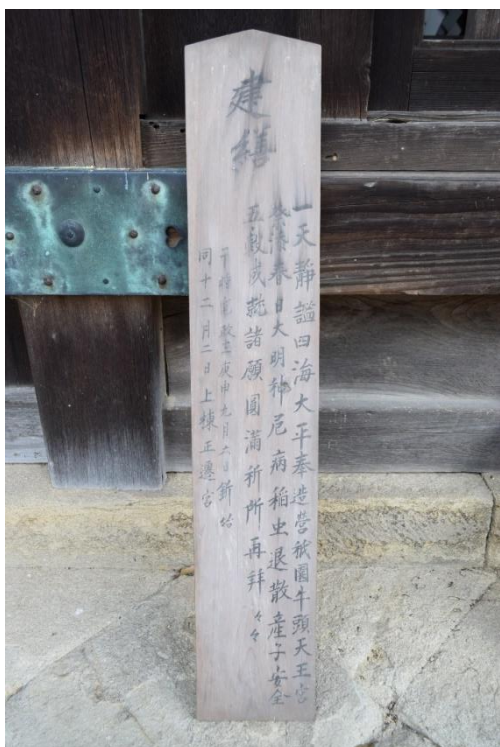 建繕
一天静謐四海大平奉造営祇園牛頭天王宮
春日大明神厄病稲虫退散産子安全
五穀成就諸願圓満祈所再拝々々
寛政庚申九月六日釿始
同十二月二日上棟正遷宮